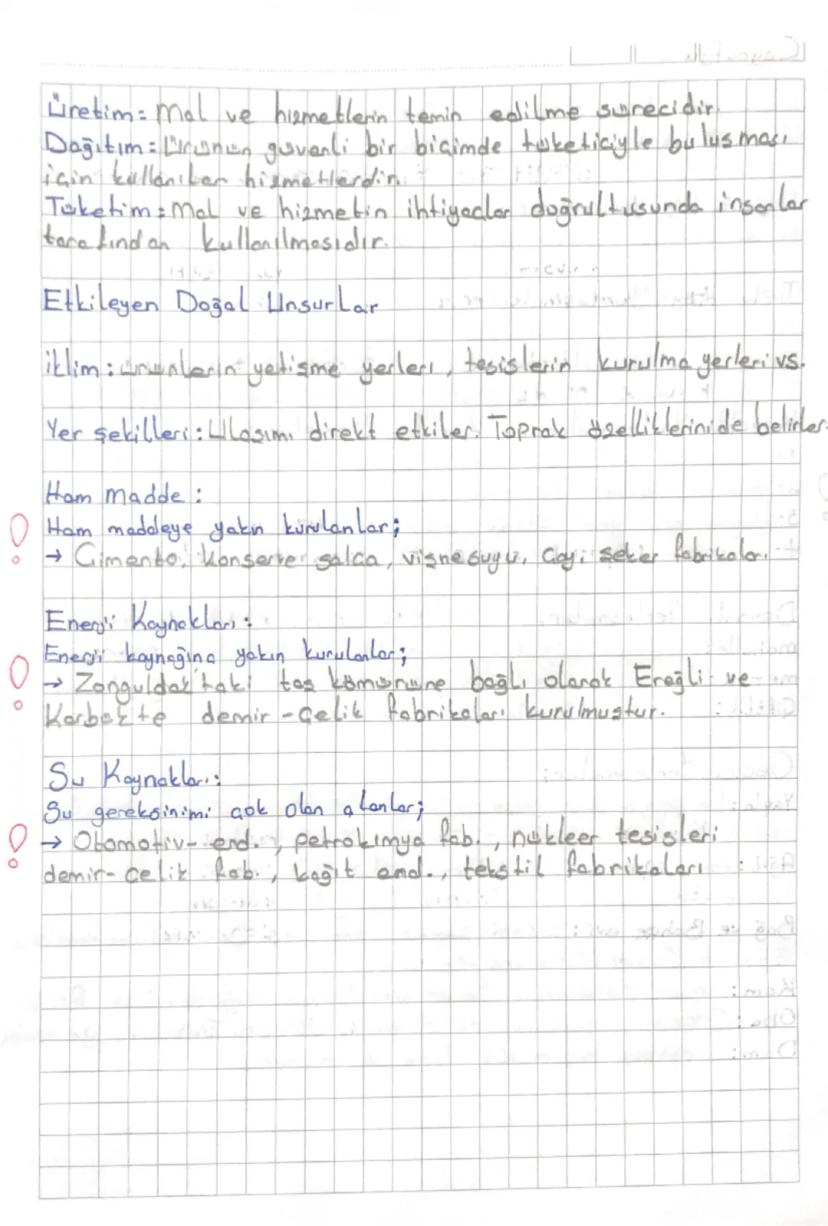 Üretim: Mal ve hizmetlerin temin edilme sürecidir.
Dağıtım: Ürünün güvenli bir biçimde tüketiciyle buluşması
için kullanılan hizmetlerdir.
Tüketim: Mal ve hizmetin ihtiyaçlar doğrultusunda insanlar
tarafından kullanılmasıdır.
Etkileyen Doğal Unsurlar
iklim: ürünlerin yetişme yerleri, tesislerin kurulma yerleri vs.
Yer şekilleri: Ulaşımı direkt etkiler. Toprak özelliklerinide belirler.
Ham madde:
Ham maddeye yakın kurulanlar;
→ Çimento, konserve salça, vişnesuyu, çay, şeker fabrikaları.
Enerji Kaynakları:
Enerji kaynağına yakın kurulanlar;
→ Zonguldak'taki taş kömürüne bağlı olarak Ereğli ve
Karbükte demir-çelik fabrikaları kurulmuştur.
Su Kaynakları:
Su gereksinimi çok olan alanlar;
→ Otomotiv- end., petrokimya fab., nükleer tesisleri
demir-çelik fab., kağıt end., tekstil fabrikaları